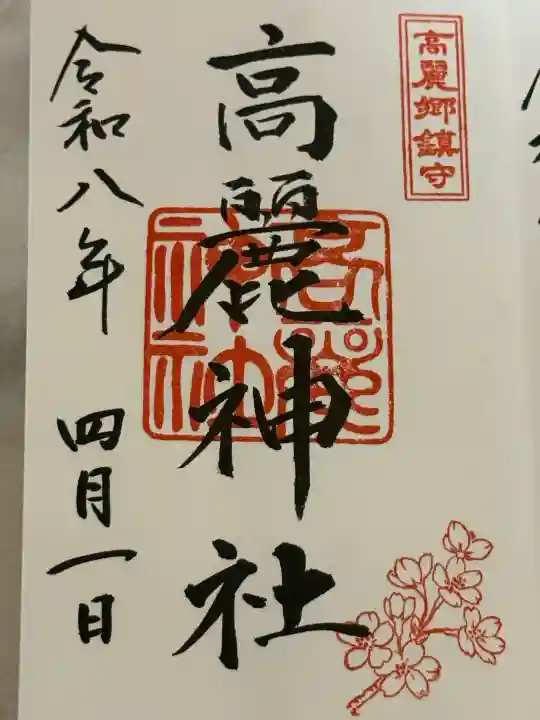 高麗郷鎮守
高麗神社
令和八年 四月一日